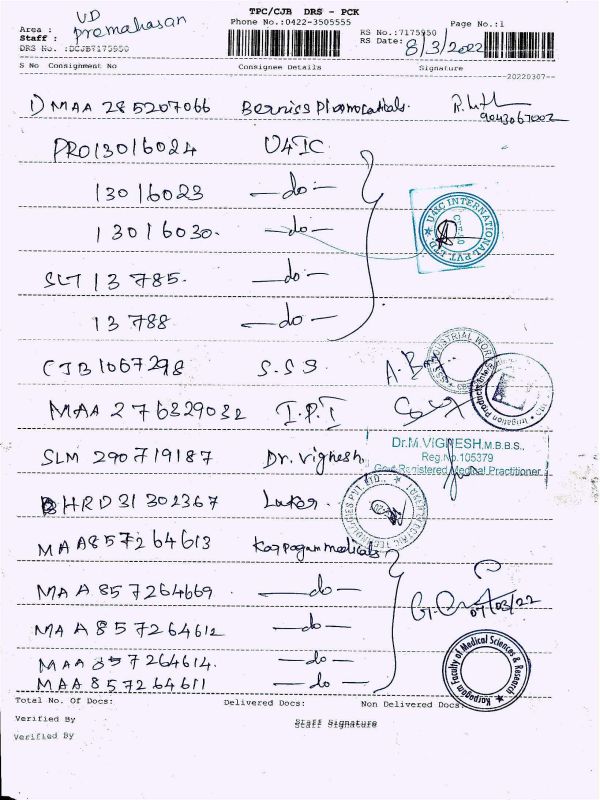 TPC/CJB DRS - PCK
Phone No.:0422-3505555
Page No.:1
Area : UD
Staff : Premahasan
DRS No. :DCJB7175950
RS No.:7175950
RS Date: 8/3/2022
S No Consignment No Consignee Details Signature
20220307
MAA 285207066
9043067002
PRO13016024 U4IC
13016023 —do—
13016030 —do—
SLT 13 785. —do—
13 788 —do—
U4IC INTERNATIONAL PVT. LTD.
CJB1067298 S.S.S.
MAA 276329032 I.P.I
SLM 290719187 Dr. Vighesh
Dr.M.VIGNESH,M.B.B.S.,
Reg.No.105379
Govt.Registered Medical Practitioner
HRD31302367
MAA857264613 Karpagam medicals
MAA 857264669 —do—
MAA 857264612 —do—
07/03/22
MAA 857264614. —do—
MAA 857264611 —do—
Karpagam Faculty of Medical Sciences & Research
Total No. Of Docs: Delivered Docs: Non Delivered Docs:
Verified By Staff Signature
Verified By